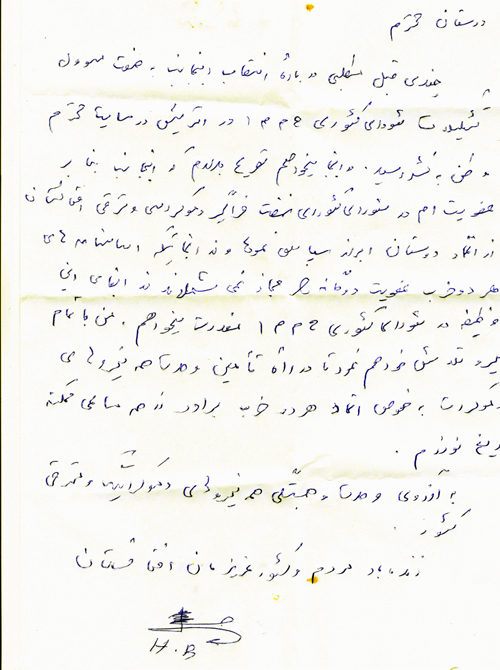 دوستان محترم
چندی قبل مطلبی در باره انتصاب اینجانب به صفت مسوول
تشکیلات شورای کشوری ح م م ا در اترنیش در سایت محترم
وطن به نشر رسید. در اینجا میخواهم تصریح بدارم که اینجانب بنا بر
عضویت ام در شورای کشوری نهضت فراگیر دموکراسی و ترقی افغانستان
از اتحاد دوستان ابراز سپاس می نمایم و از آنجائیکه اساسنامه های
هر دو حزب عضویت دوگانه را مجاز نمی شمارند از ایفای این
وظیفه در شورای کشوری ح م م ا معذرت میخواهم. من با تمام
نیرو تلاش خواهم نمود تا در راه تأمین وحدت همه نیروهای
دموکرات به خصوص اتحاد هر دو حزب برادر از همه مساعی ممکنه
دریغ نورزم.
به آرزوی وحدت و همبستگی همه نیروهای دموکراتیک و مترقی
کشور.
زنده باد مردم و کشور عزیز مان افغانستان
H.B